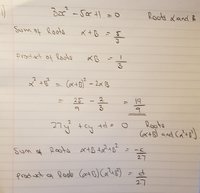 3x² - 5x + 1 = 0 Roots α and β
Sum of Roots α + β = 5/3
Product of Roots αβ = 1/3
α² + β² = (α+β)² - 2αβ
= 25/9 - 2/3 = 19/9
27y² + cy + d = 0 Roots
(α+β) and (α²+β²)
Sum of Roots α+β+α²+β² = -c/27
Product of Roots (α+β)(α²+β²) = d/27